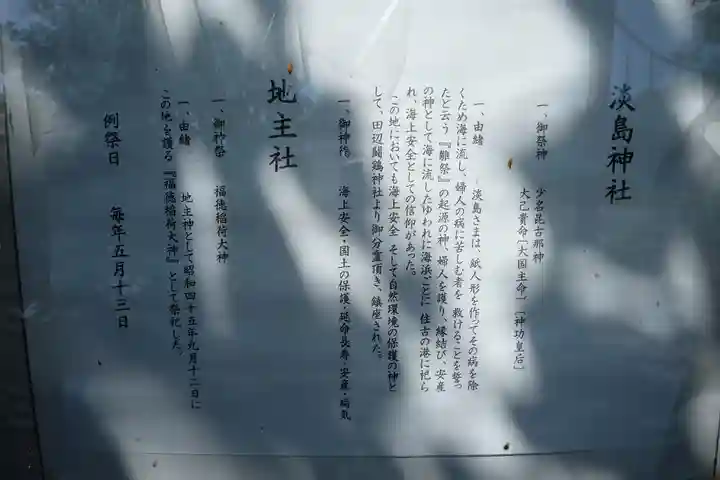 淡島神社
一、御祭神　少名毘古那神
大己貴命〔大国主命〕〔神功皇后〕
一、由緒　淡島さまは、紙人形を作ってその病を除
くため海に流し、婦人の病に苦しむ者を救けることを誓っ
たと云う『雛祭』の起源の神、婦人を護り、縁結び、安産
の神として海に流したゆわれに海浜ごとに住古の港に祀ら
れ、海上安全としての信仰があった。
この地においても海上安全そして自然環境の保護の神と
して、田辺闘鶏神社より御分霊頂き、鎮座された。
一、御神徳　海上安全・国土の保護・延命長寿・安産・病気
地主社
一、御神祭　福徳稲荷大神
一、由緒　地主神として昭和四十五年九月十二日に
この地を護る『福徳稲荷大神』として祭祀した。
例祭日　毎年五月十三日